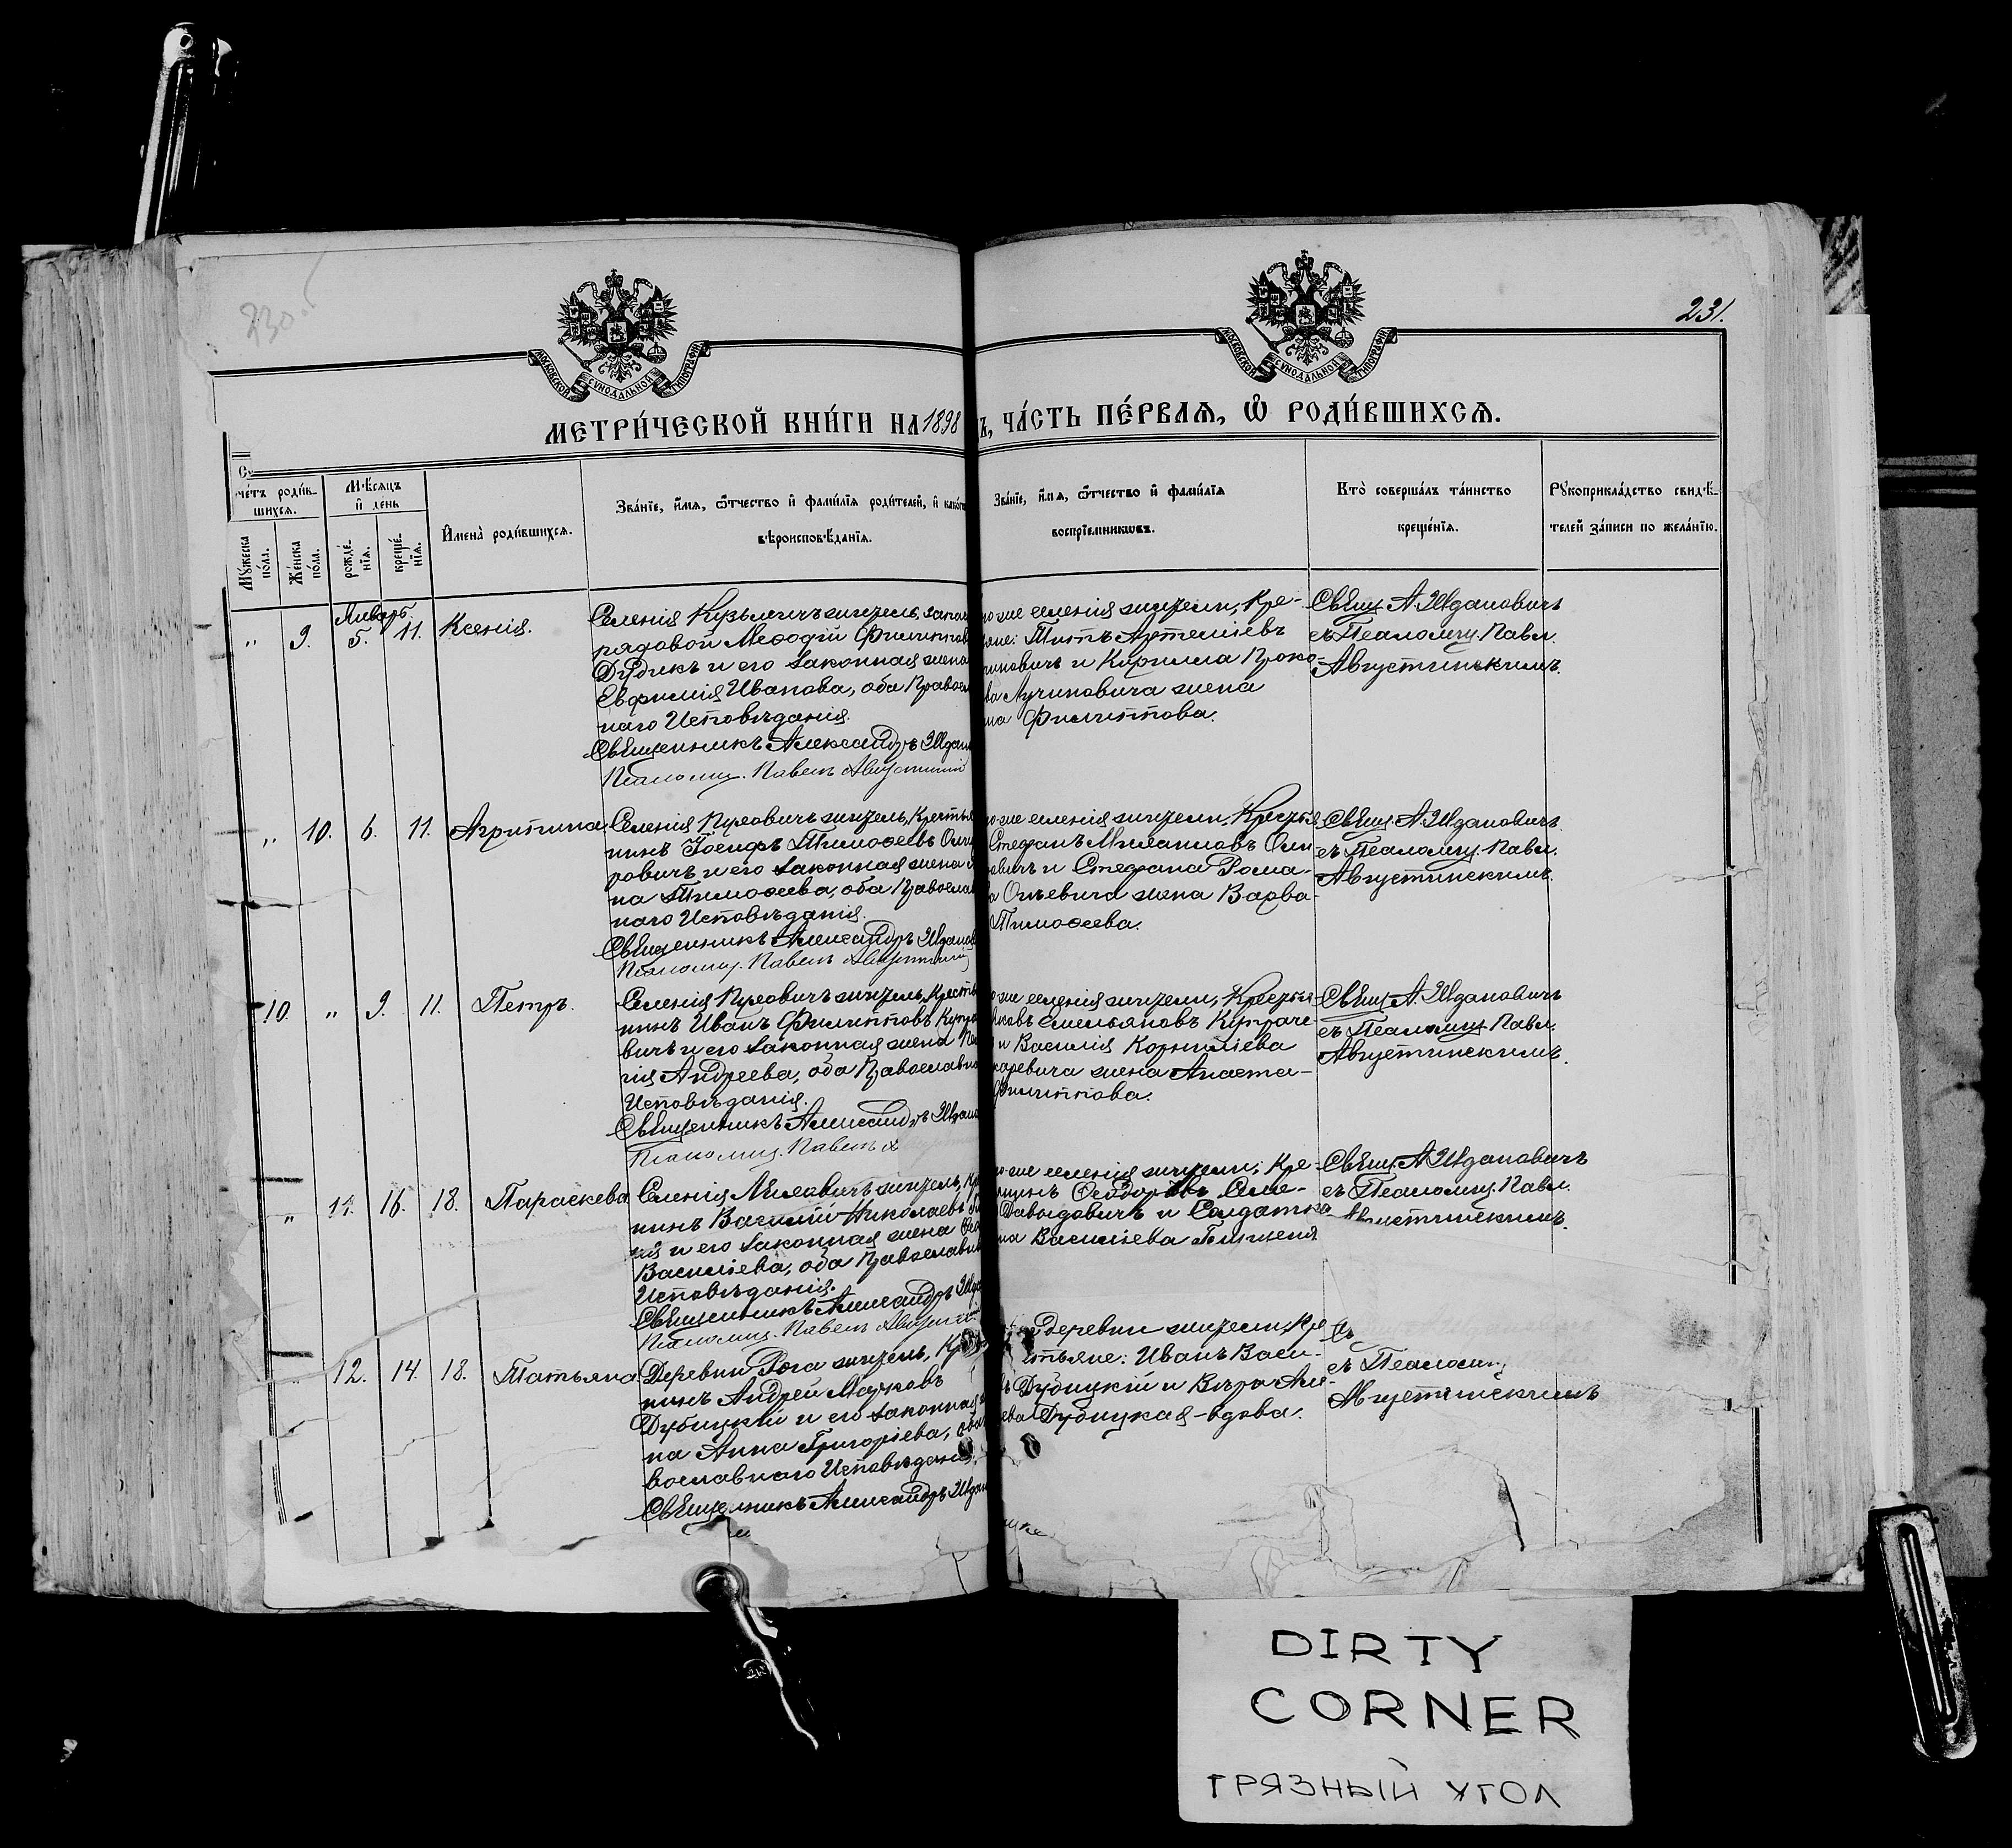 230.
231.
МОСКОВСКОЙ СѴНОДАЛЬНОЙ ТИПОГРАФІИ
МОСКОВСКОЙ СѴНОДАЛЬНОЙ ТИПОГРАФІИ
МЕТРИ́ЧЕСКОЙ КНИ́ГИ НА 1898
Ъ, ЧА́СТЬ ПЕ́РВАЯ, Ѡ҆ РОДИ́ВШИХСЯ.
Сче́тъ роди́вшихся.
Мꙋ́жеска по́ла.
Же́нска по́ла.
Мѣ́сяцъ и҆ день
рожде́нїя.
креще́нїя.
И҆мена̀ роди́вшихся.
Зва́нїе, и҆́мя, ѻ҆́тчество и҆ фами́лїя роди́телей, и҆ како́гѡ
вѣроисповѣ́данїя.
Зва́нїе, и҆́мя, ѻ҆́тчество и҆ фами́лїя
воспрїе́мникѡвъ.
Кто̀ соверша́лъ та́инство
креще́нїя.
Рꙋкоприкла́дство свидѣ́-
телей за́писи по жела́нїю.
Январь
„ 9. 5. 11. Ксенія.
Селенія Кузьмичъ житель, запас
рядовой Меѳодій Филиппов
Дудикъ и его законная жена
Евфимія Иванова, оба Правосл
наго Исповѣданія.
Священникъ Александръ Ждан
Псаломщ. Павелъ Августинскі
го же селенія жители, Кре-
яне: Титъ Артеміевъ
чиновичъ и Кирилла Проко-
ва Лучиновича жена
на Филиппова.
Свящ. А. Ждановичъ
съ Псаломщ. Павл.
Августинскимъ.
„ 10. 6. 11. Агрипина.
Селенія Пуховичъ житель, Крестья
нинъ Іосифъ Тимоѳеевъ
ровичъ и его законная жена
на Тимоѳеева, оба Правосла
наго Исповѣданія.
Священникъ Александръ Жданов
Псаломщ. Павелъ Августинскій
го же селенія жители, Крестья
Стефанъ
овичъ и Стефана Рома-
жена Варва-
Тимоѳеева.
Свящ. А. Ждановичъ
съ Псаломщ. Павл.
Августинскимъ.
10. „ 9. 11. Петръ.
Селенія Пуховичъ житель, Кресть
нинъ Иванъ Филипповъ
вичъ и его законная жена Пела
гія Андреева, оба Православна
Исповѣданія.
Священникъ Александръ Ждано
Псаломщ. Павелъ А
го же селенія жители, Крестья
Яковъ Емельяновъ
и Василія Корниліева
жена Анаста-
Филиппова.
Свящ. А. Ждановичъ
съ Псаломщ. Павл.
Августинскимъ.
„ 11. 16. 18. Параскева.
Селенія житель, Кр
нинъ Василій Николаевъ
и его законная жена
Василіева, оба Православн
Исповѣданія.
Священникъ Александръ Жда
Псаломщ. Павелъ Августи
го же селенія жители; Кре-
Ѳеодоровъ
Давыдовичъ и Солдатка
на Василіева
Свящ. А. Ждановичъ
съ Псаломщ. Павл.
Августинскимъ.
12. 14. 18. Татьяна.
Деревни Рога житель, Кр
нинъ Андрей Марковъ
Дубицкій и его законная
на Анна Григоріева, оба
вославнаго Исповѣданія.
Священникъ Александръ Ждан
деревни жители, Кре
стьяне: Иванъ Васи-
въ Дубицкій и Вѣра Але-
ева Дубицкая-вдова.
съ Псаломщ
Августинскимъ
DIRTY
CORNER
ГРЯЗНЫЙ УГОЛ